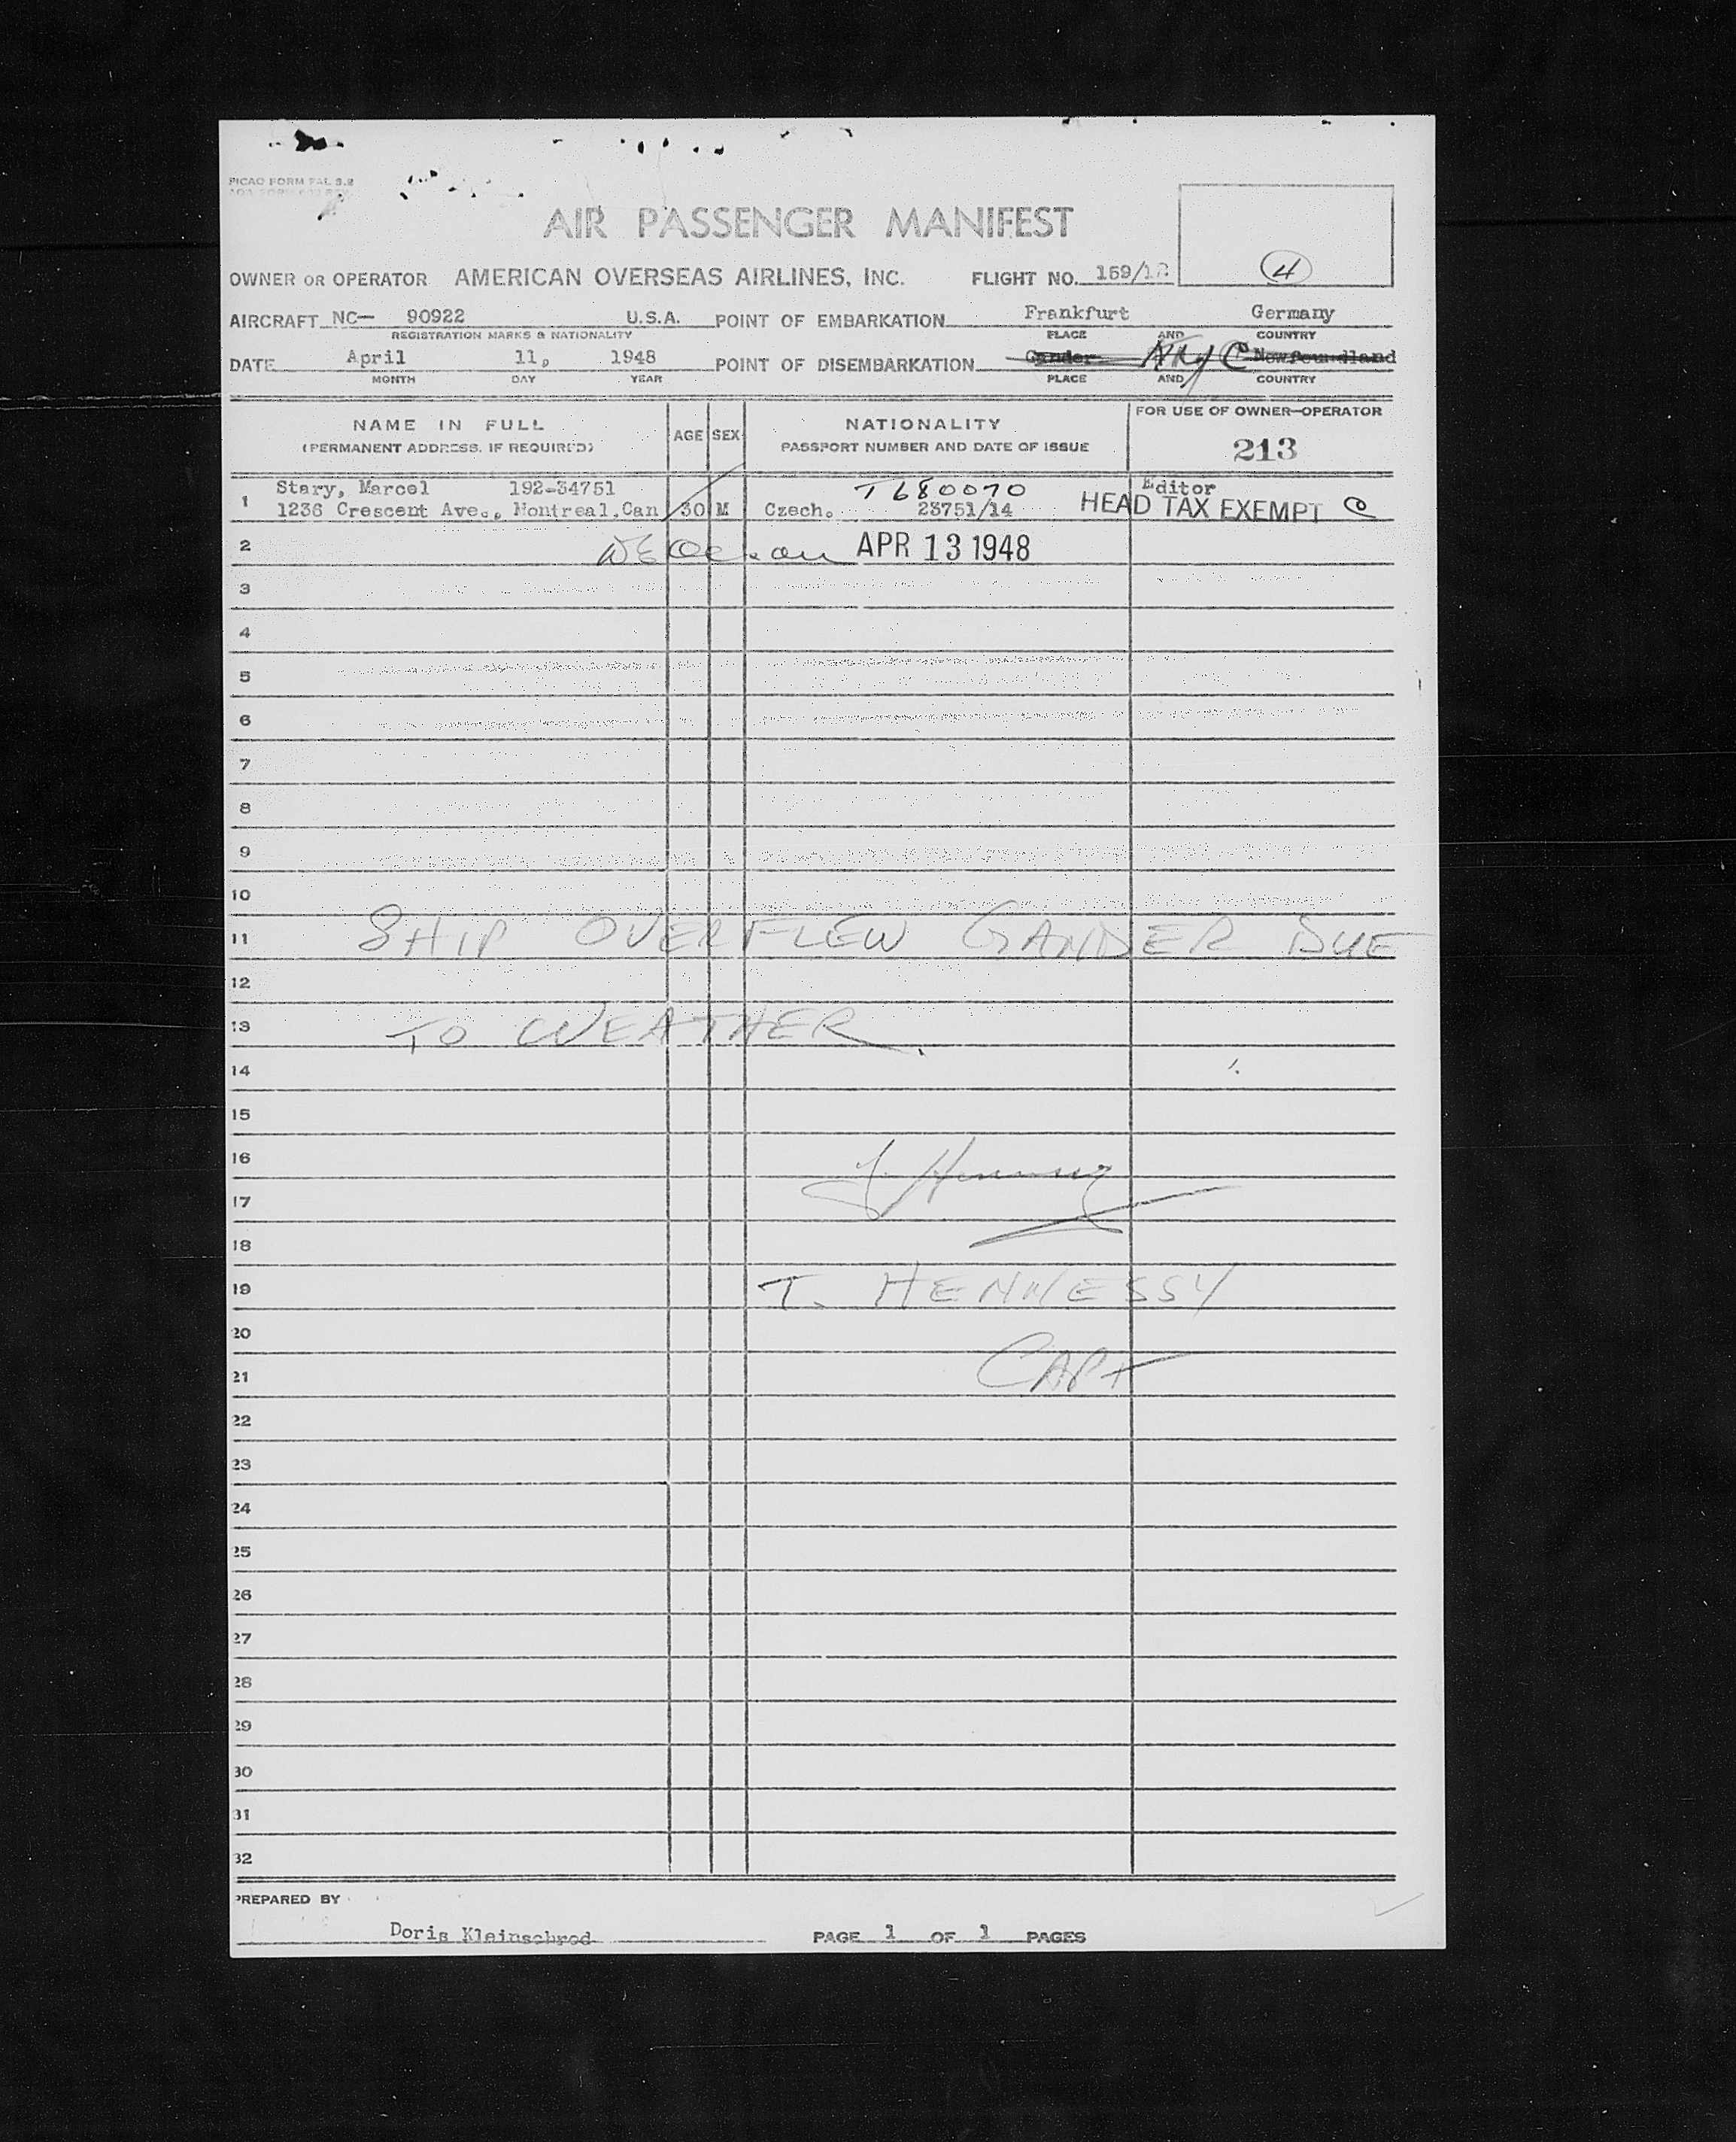 PICAO FORM FAL 3.2
AIR PASSENGER MANIFEST
4
OWNER OR OPERATOR AMERICAN OVERSEAS AIRLINES, INC. FLIGHT NO. 159/12
AIRCRAFT NC— 90922 U.S.A. POINT OF EMBARKATION Frankfurt Germany
REGISTRATION MARKS & NATIONALITY PLACE AND COUNTRY
DATE April 11, 1948 POINT OF DISEMBARKATION Gander NKY C Newfoundland
MONTH DAY YEAR PLACE AND COUNTRY
NAME IN FULL AGE SEX NATIONALITY FOR USE OF OWNER—OPERATOR
(PERMANENT ADDRESS, IF REQUIRED) PASSPORT NUMBER AND DATE OF ISSUE 213
1 Stary, Marcel 192-34751 T 680070 Editor
1236 Crescent Ave., Montreal.Can 30 M Czech. 23751/14 HEAD TAX EXEMPT
2 APR 13 1948
3
4
5
6
7
8
9
10
11 SHIP OVERFLEW GANDER DUE
12
13 TO WEATHER.
14
15
16
17
18
19 T. HENNESSY
20
21 CAPT
22
23
24
25
26
27
28
29
30
31
32
PREPARED BY
Doris Kleinschrod PAGE 1 OF 1 PAGES